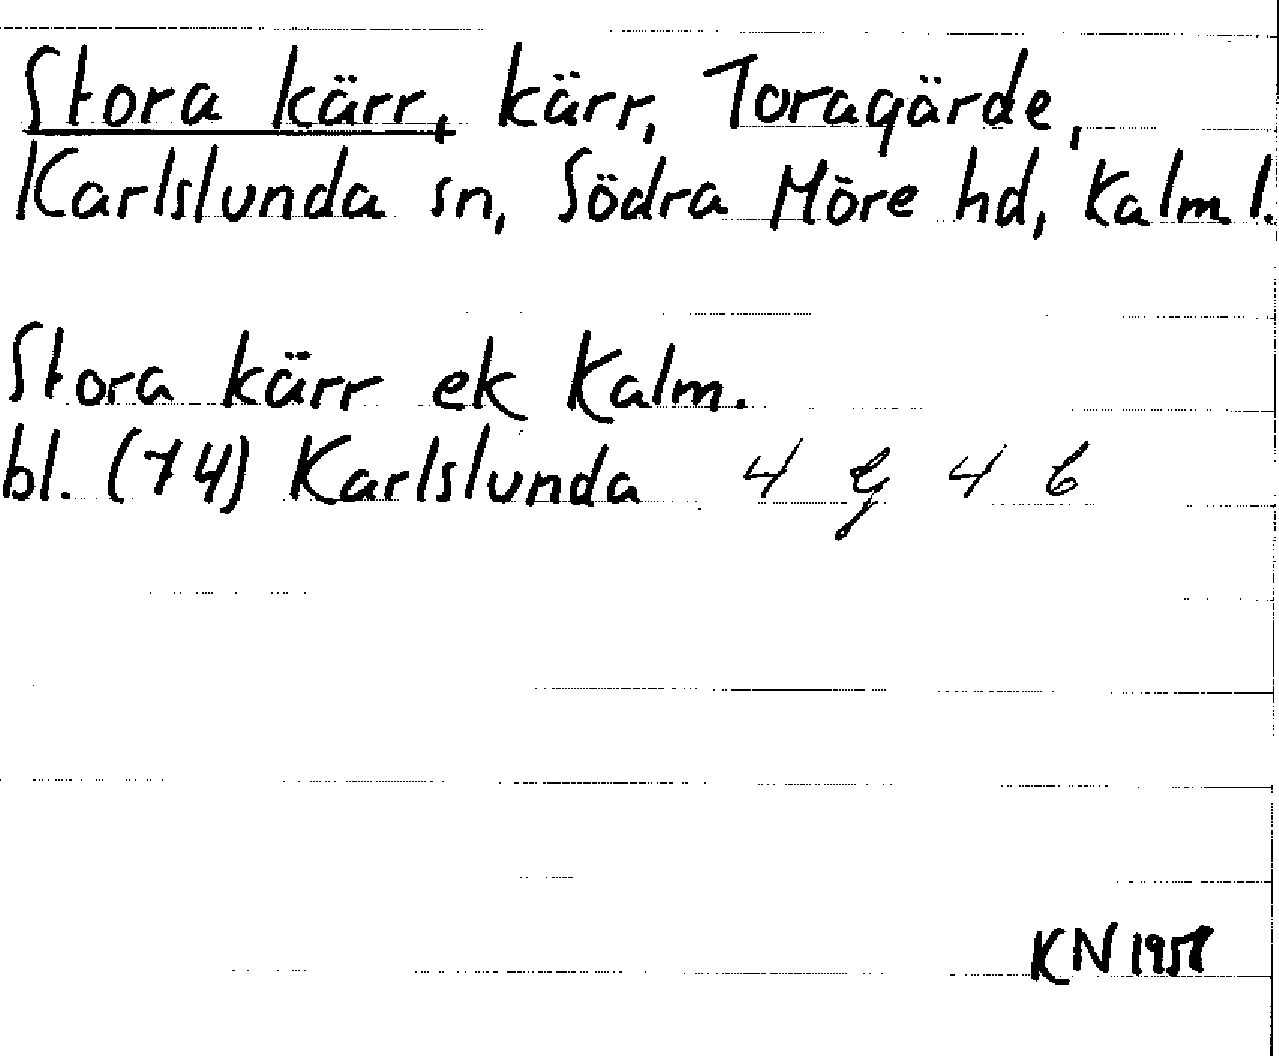 Stora kärr, kärr, Toragärde,
Karlslunda sn, Södra Möre hd, Kalm l.
Stora kärr ek Kalm.
bl. (74) Karlslunda 4 g 4 b
KN